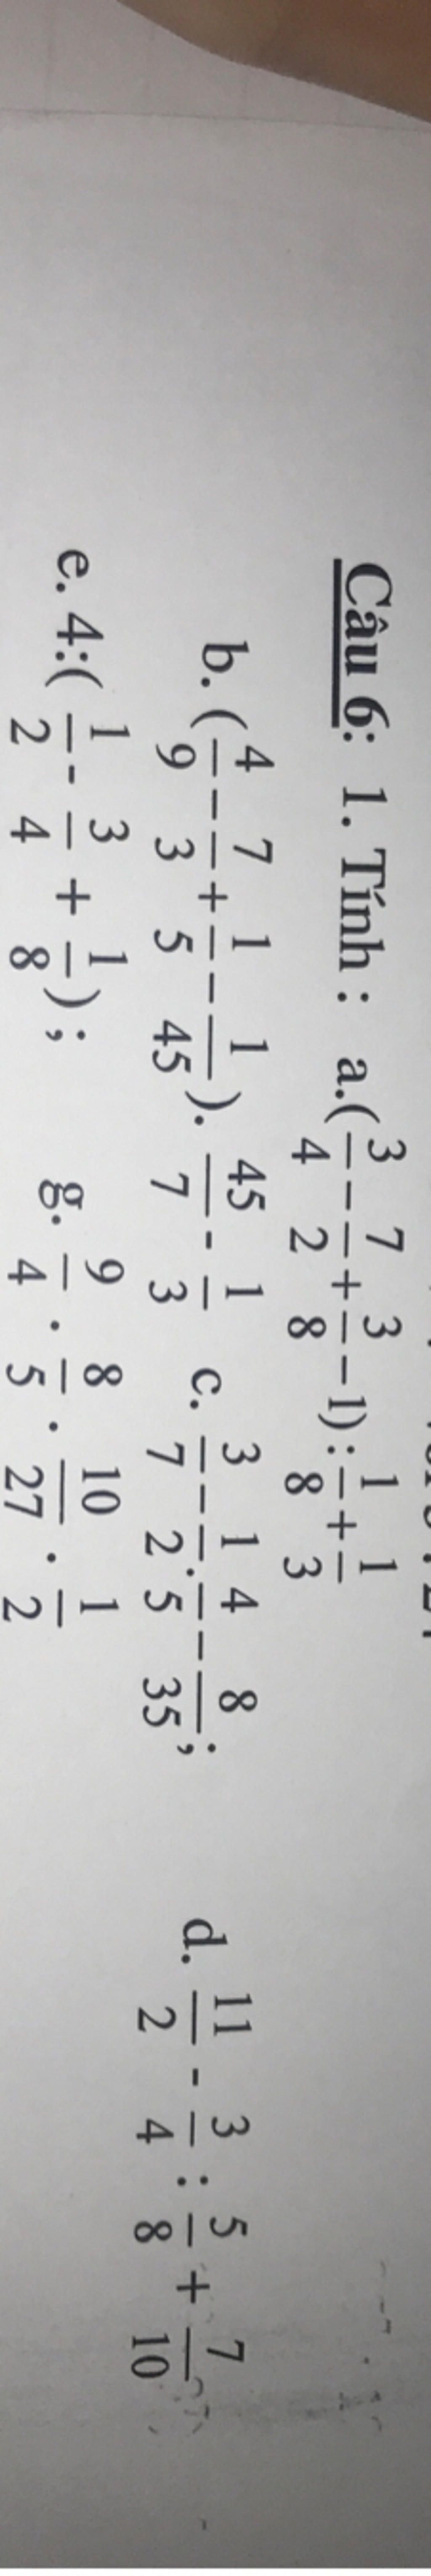 Câu 6: 1. Tính : a.(3/4 − 7/2 + 3/8 − 1) : 1/8 + 1/3
b. (4/9 − 7/3 + 1/5 − 1/45). 45/7 - 1/3 c. 3/7 − 1/2 . 4/5 − 8/35; d. 11/2 - 3/4 : 5/8 + 7/10
e. 4:(1/2 - 3/4 + 1/8); g. 9/4 . 8/5 . 10/27 . 1/2